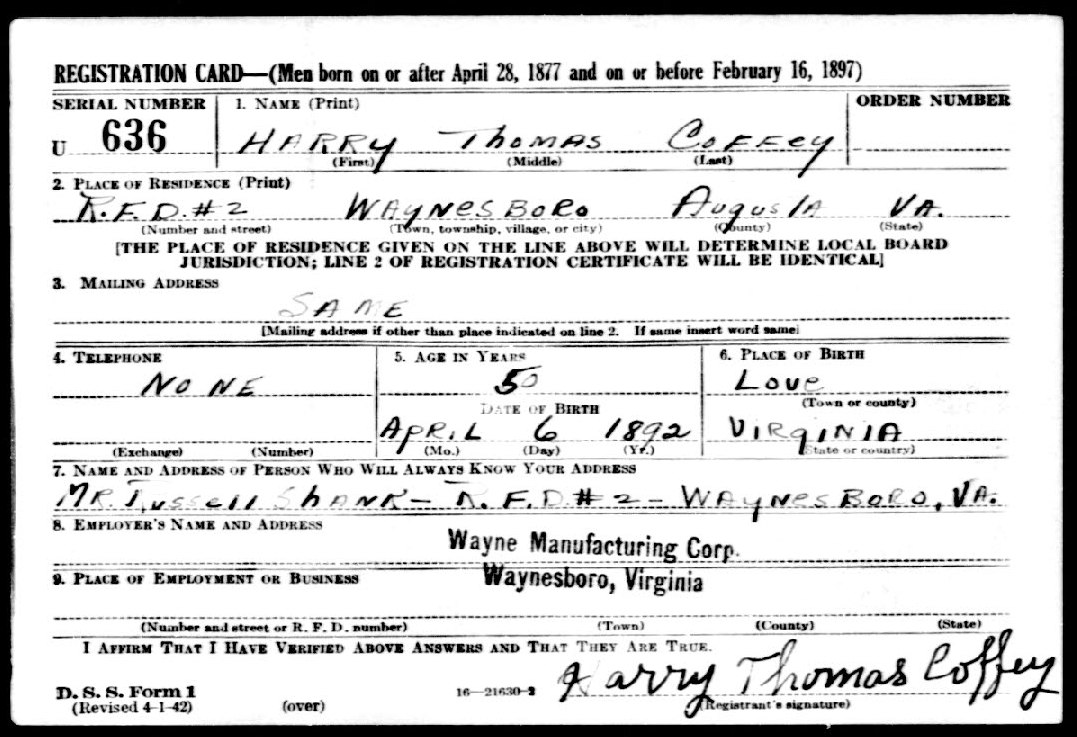 REGISTRATION CARD—(Men born on or after April 28, 1877 and on or before February 16, 1897)
SERIAL NUMBER 1. NAME (Print) ORDER NUMBER
U 636 HARRY THOMAS COFFEY
(First) (Middle) (Last)
2. PLACE OF RESIDENCE (Print)
R.F.D.#2 WAYNESBORO AUGUSTA VA.
(Number and street) (Town, township, village, or city) (County) (State)
[THE PLACE OF RESIDENCE GIVEN ON THE LINE ABOVE WILL DETERMINE LOCAL BOARD
JURISDICTION; LINE 2 OF REGISTRATION CERTIFICATE WILL BE IDENTICAL]
3. MAILING ADDRESS
SAME
[Mailing address if other than place indicated on line 2. If same insert word same]
4. TELEPHONE 5. AGE IN YEARS 6. PLACE OF BIRTH
NONE 50 LOVE
DATE OF BIRTH (Town or county)
APRIL 6 1892 VIRGINIA
(Exchange) (Number) (Mo.) (Day) (Yr.) (State or country)
7. NAME AND ADDRESS OF PERSON WHO WILL ALWAYS KNOW YOUR ADDRESS
MR. RUSSELL SHANK — R.F.D.#2 — WAYNESBORO, VA.
8. EMPLOYER'S NAME AND ADDRESS
Wayne Manufacturing Corp.
9. PLACE OF EMPLOYMENT OR BUSINESS Waynesboro, Virginia
(Number and street or R. F. D. number) (Town) (County) (State)
I AFFIRM THAT I HAVE VERIFIED ABOVE ANSWERS AND THAT THEY ARE TRUE.
Harry Thomas Coffey
D. S. S. Form 1 16—21630-2
(Revised 4-1-42) (over) (Registrant's signature)